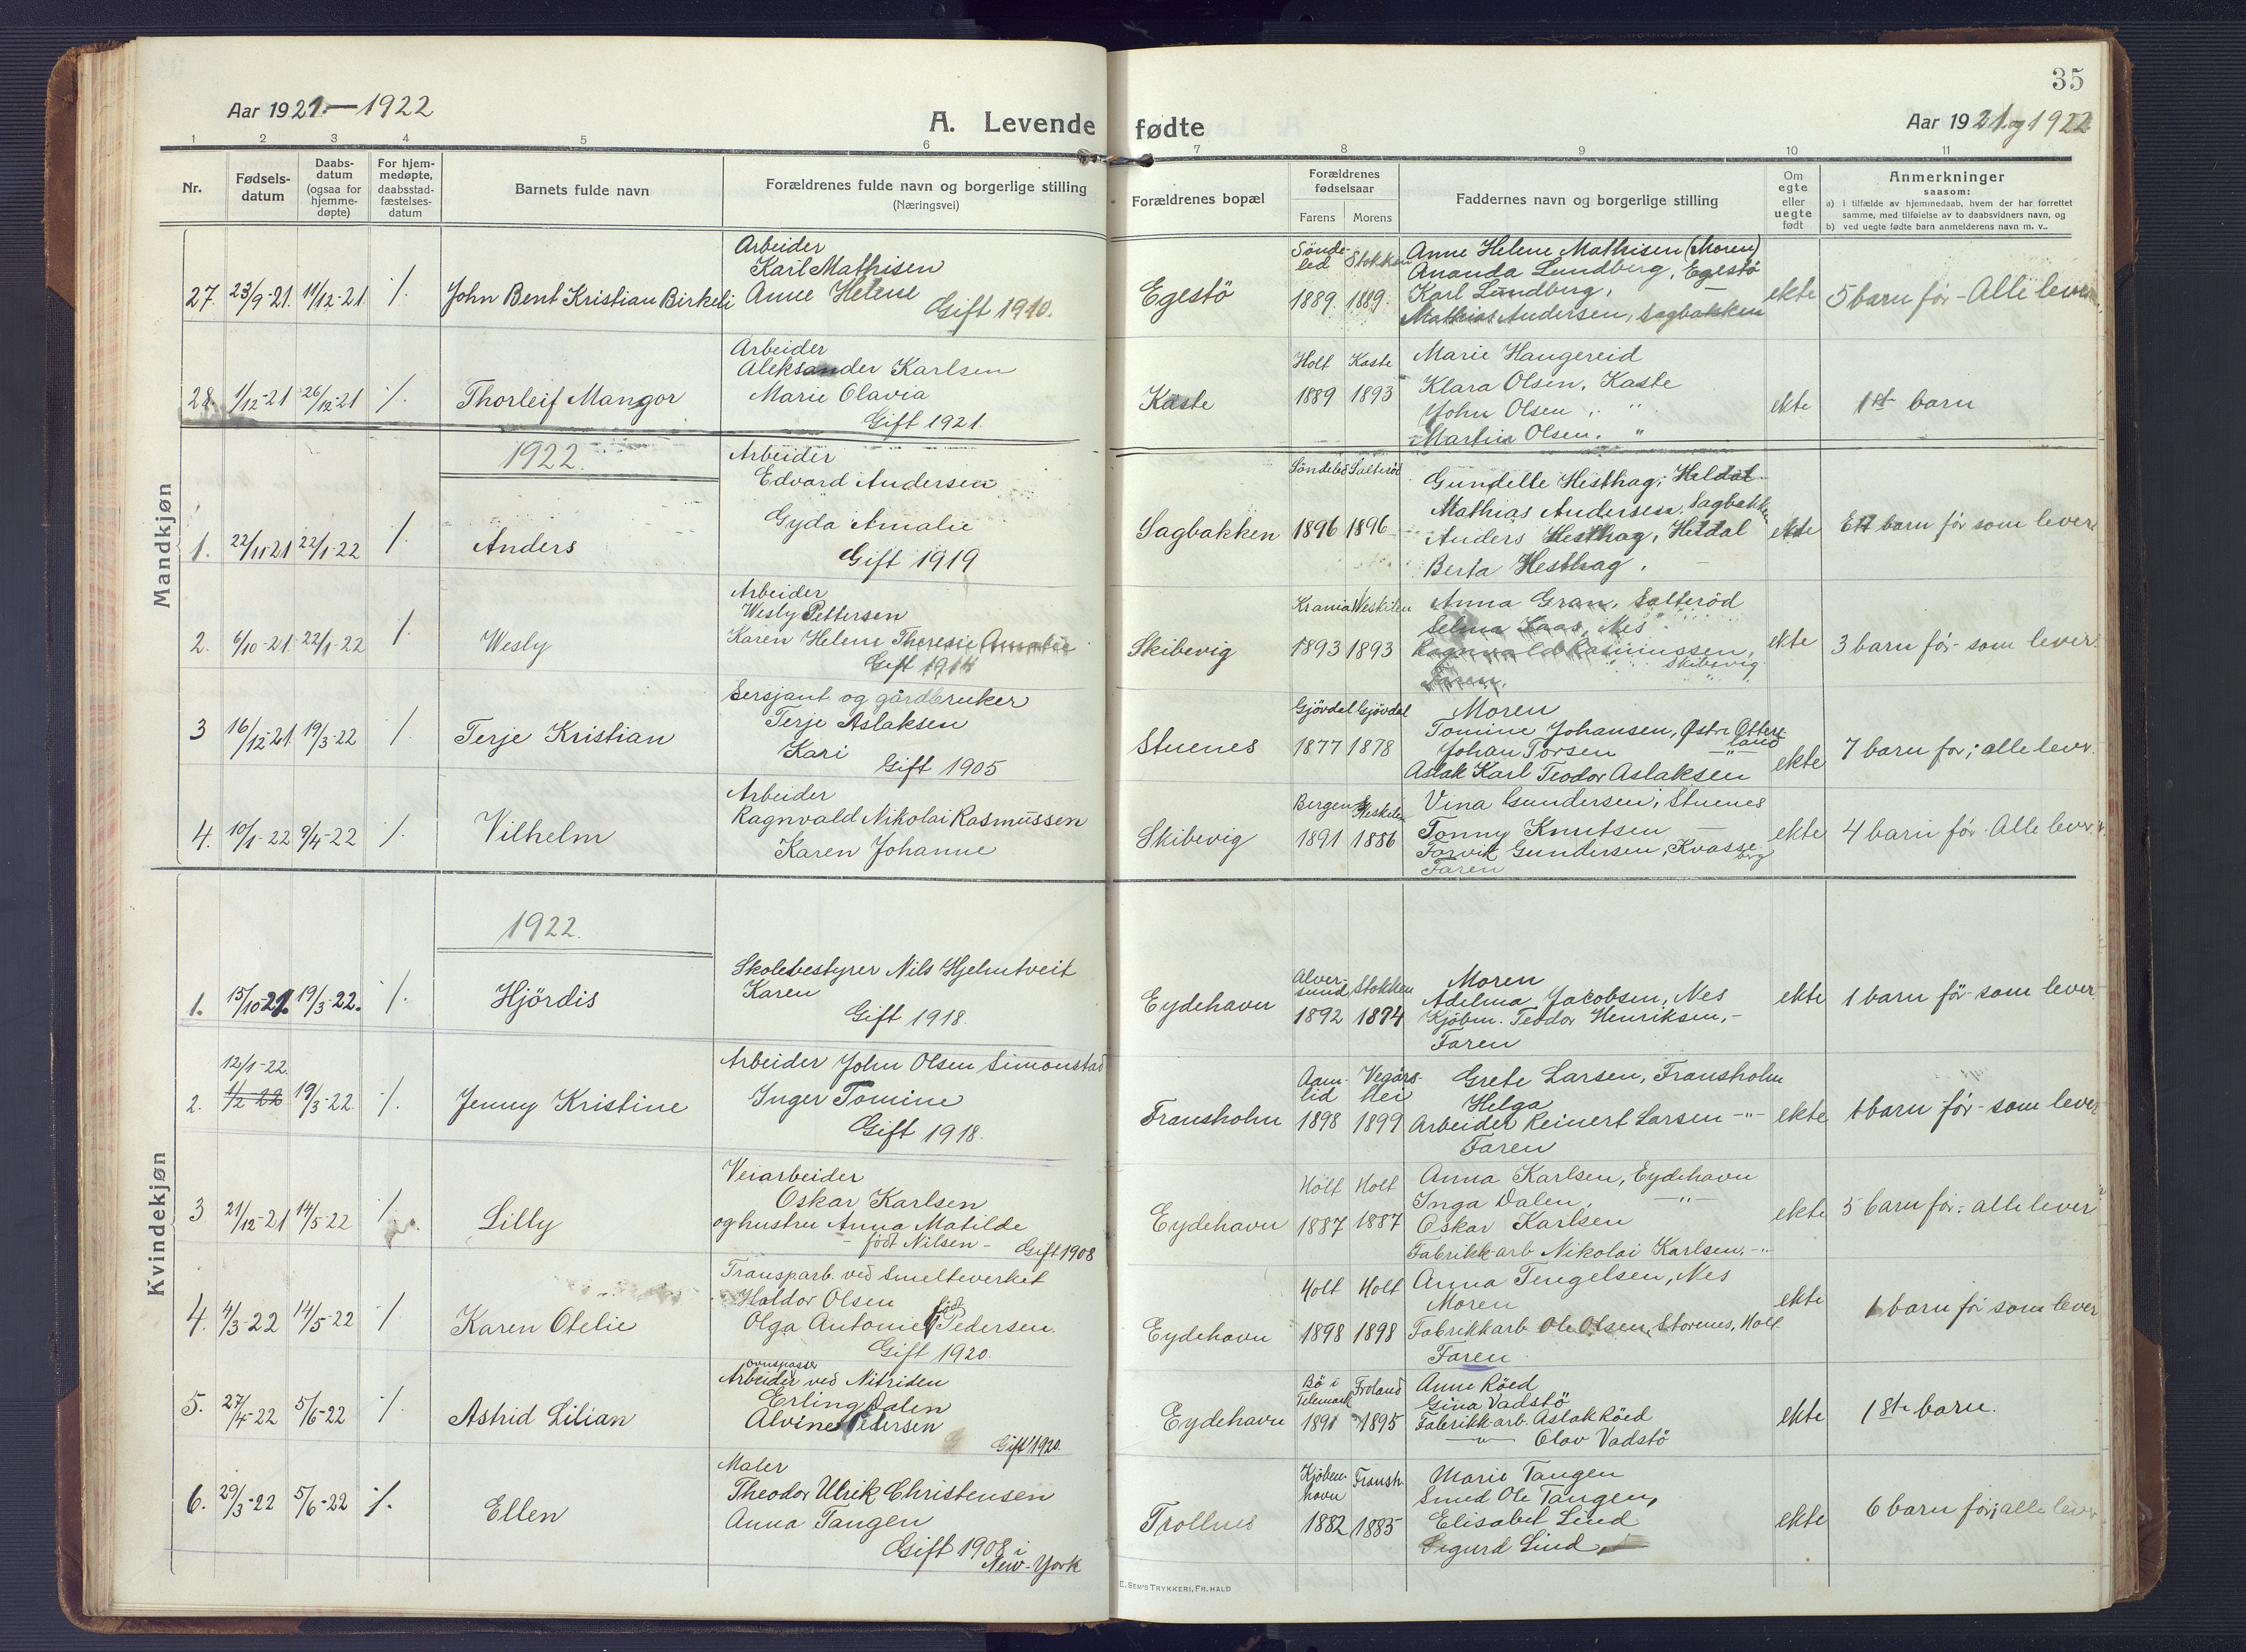 35
Aar 1921.—1922
A. Levende fødte
Aar 1921 og 1922
1 2 3 4 5 6 7 8 9 10 11
Nr.
Fødsels-
datum
Daabs-
datum
(ogsaa for
hjemme-
døpte)
For hjem-
medøpte,
daabsstad-
fæstelses-
datum
Barnets fulde navn
Forældrenes fulde navn og borgerlige stilling
(Næringsvei)
Forældrenes bopæl
Forældrenes
fødselsaar
Farens Morens
Faddernes navn og borgerlige stilling
Om
egte
eller
uegte
født
Anmerkninger
saasom:
a) i tilfælde av hjemmedaab, hvem der har forrettet
samme, med tilføielse av to daabsvidners navn, og
b) ved uegte fødte barn anmelderens navn m. v..
Mandkjøn
27. 23/9-21. 11/12-21 ./. John Bent Kristian Birkeli
Arbeider
Karl Mathisen
Anne Helene
Gift 1910.
Egestö
Sönde-
led Stokken
1889 1889.
Anne Helene Mathisen (Moren)
Ananda Lundberg, Egestö
Karl Lundberg, —
Mathias Andersen, Sagbakken
ekte
5 barn før - Alle lever
28. 1/12-21 26/12-21 ./. Thorleif Mangor
Arbeider
Aleksander Karlsen
Marie Olavia
Gift 1921.
Kaste
Holt Kaste
1889 1893
Marie Haugereid
Klara Olsen, Kaste
John Olsen, "
Martin Olsen, "
ekte
1ste barn
1922.
1. 22/11-21 22/1-22 ./. Anders
Arbeider
Edvard Andersen
Gyda Amalie
Gift 1919
Sagbakken
Söndeled Salteröd
1896 1896
Gundelle Hesthag, Heldal
Mathias Andersen, Sagbakken
Anders Hesthag, Heldal
Berta Hesthag, —
ekte
Ett barn før som lever
2. 6/10-21 22/1-22 ./. Wesly
Arbeider
Wesly Pettersen
Karen Helene Theresie Amalie
Gift 1914
Skibevig
1893 1893
Anna Gran, Salteröd
Selma Kaas, Nes
Ragnvald Rasmussen,
Skibevig
Faren.
ekte
3 barn før som lever.
3 16/12-21 19/3-22 ./. Terje Kristian
Sersjant og gårdbruker
Terje Aslaksen
Kari
Gift 1905
Stuenes
Gjövdal Gjövdal
1877 1878
Moren
Tomine Johansen, Østre Otters-
land
Johan Torsen —"—
Aslak Karl Teodor Aslaksen
ekte
7 barn før; alle lever.
4. 10/1-22 9/4-22 ./. Vilhelm
Arbeider
Ragnvald Nikolai Rasmussen
Karen Johanne
Skibevig
Bergen
1891 1886
Vina Gundersen, Stuenes
Tonny Knutsen —
Torvik Gundersen, Kvasse-
berg
Faren
ekte
4 barn før. Alle lever.
Kvindekjøn
1922.
1. 15/10-21. 19/3-22. ./. Hjördis
Skolebestyrer Nils Hjelmtveit
Karen
Gift 1918.
Eydehavn
Alver-
sund Stokken
1892 1894
Moren
Adelma Jacobsen, Nes
Kjöbm. Teodor Henriksen, -
Faren
ekte
1 barn før som lever
2. 12/1-22.
1/2 22 19/3-22. ./. Jenny Kristine
Arbeider John Olsen Simonstad
Inger Tomine
Gift 1918.
Fransholm
Aam-
lid Vegårs-
hei
1898 1899
Grete Larsen, Fransholm
Helga
Arbeider Reinert Larsen —"—
Faren
ekte
1 barn før som lever
3 21/12-21 14/5-22 ./. Lilly
Veiarbeider
Oskar Karlsen
og hustru Anna Matilde
- født Nilsen - Gift 1908
Eydehavn
Holt Holt
1887 1887
Anna Karlsen, Eydehavn
Inga Dalen, —"—
Oskar Karlsen
Fabrikk-arb Nikolai Karlsen, -"-
ekte
5 barn før; alle lever
4. 4/3-22 14/5-22 ./. Karen Otelie
Transp.arb. ved Smelteverket
Haldor Olsen
Olga Antonie født Pedersen.
Gift 1920.
Eydehavn
Holt Holt
1898 1898
Anna Tengelsen, Nes
Moren
Fabrikkarb Ole Olsen, Storenes, Holt
Faren
ekte
1 barn før som lever
5. 27/4-22 5/6-22 ./. Astrid Lilian
ovnspasser
Arbeider ved Nitriden
Erling Dalen
Alvine Pedersen
Gift 1920.
Eydehavn
Bö i
Telemark Froland
1891 1895
Anne Röed
Gina Vadstö
Fabrikk-arb. Aslak Röed
—"— Olav Vadstö
ekte
1ste barn.
6. 29/3-22 5/6-22 ./. Ellen
Maler
Theodor Ulrik Christensen
Anna Tangen
Gift 1908 i
New-York
Trollnes
Kjöben-
havn Fransh.
1882 1885
Marie Tangen
Smed Ole Tangen,
Elisabet Lind
Sigurd Lind,
ekte
6 barn før; alle lever
E. SEM'S TRYKKERI, FR.HALD